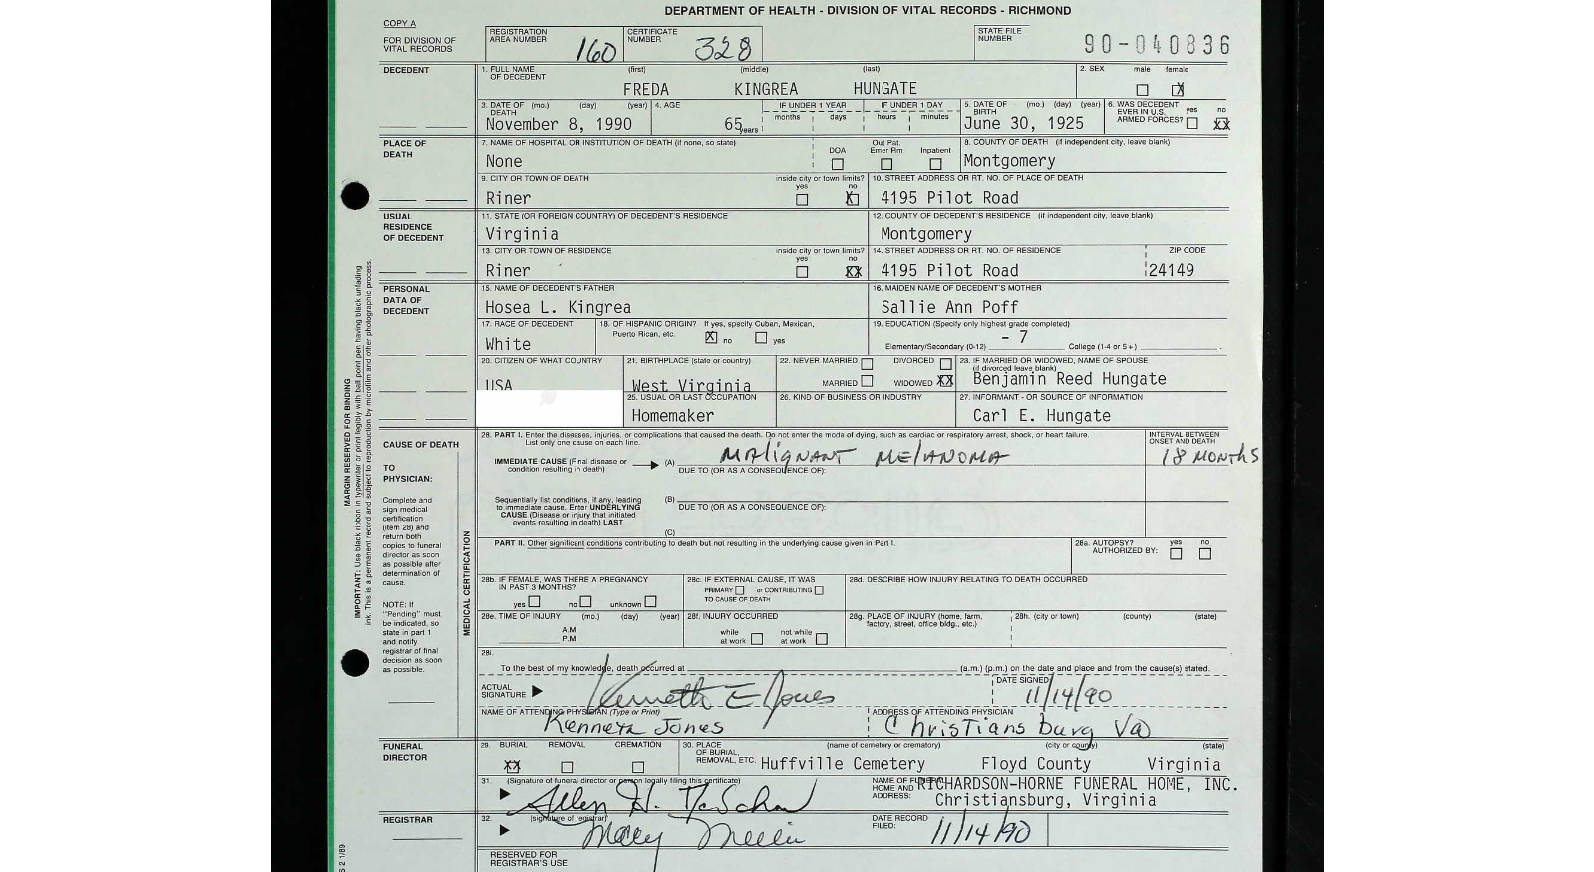 DEPARTMENT OF HEALTH - DIVISION OF VITAL RECORDS - RICHMOND
COPY A
FOR DIVISION OF VITAL RECORDS
REGISTRATION AREA NUMBER 160
CERTIFICATE NUMBER 328
STATE FILE NUMBER 90-040836
DECEDENT
1. FULL NAME OF DECEDENT (first) (middle) (last)
FREDA KINGREA HUNGATE
2. SEX male female X
3. DATE OF DEATH (mo.) (day) (year)
November 8, 1990
4. AGE 65 years
IF UNDER 1 YEAR months days
IF UNDER 1 DAY hours minutes
5. DATE OF BIRTH (mo.) (day) (year)
June 30, 1925
6. WAS DECEDENT EVER IN U.S. ARMED FORCES? yes no XX
PLACE OF DEATH
7. NAME OF HOSPITAL OR INSTITUTION OF DEATH (if none, so state)
None
DOA Out Pat. Emer Rm Inpatient
8. COUNTY OF DEATH (if independent city, leave blank)
Montgomery
9. CITY OR TOWN OF DEATH
Riner
inside city or town limits? yes no X
10. STREET ADDRESS OR RT. NO. OF PLACE OF DEATH
4195 Pilot Road
USUAL RESIDENCE OF DECEDENT
11. STATE (OR FOREIGN COUNTRY) OF DECEDENT'S RESIDENCE
Virginia
12. COUNTY OF DECEDENT'S RESIDENCE (if independent city, leave blank)
Montgomery
13. CITY OR TOWN OF RESIDENCE
Riner
inside city or town limits? yes no XX
14. STREET ADDRESS OR RT. NO. OF RESIDENCE
4195 Pilot Road
ZIP CODE
24149
PERSONAL DATA OF DECEDENT
15. NAME OF DECEDENT'S FATHER
Hosea L. Kingrea
16. MAIDEN NAME OF DECEDENT'S MOTHER
Sallie Ann Poff
17. RACE OF DECEDENT
White
18. OF HISPANIC ORIGIN? If yes, specify Cuban, Mexican, Puerto Rican, etc. X no yes
19. EDUCATION (Specify only highest grade completed)
Elementary/Secondary (0-12) - 7 College (1-4 or 5+)
20. CITIZEN OF WHAT COUNTRY
USA
21. BIRTHPLACE (state or country)
West Virginia
22. NEVER MARRIED DIVORCED
MARRIED WIDOWED XX
23. IF MARRIED OR WIDOWED, NAME OF SPOUSE (if divorced leave blank)
Benjamin Reed Hungate
25. USUAL OR LAST OCCUPATION
Homemaker
26. KIND OF BUSINESS OR INDUSTRY
27. INFORMANT - OR SOURCE OF INFORMATION
Carl E. Hungate
CAUSE OF DEATH
28. PART I. Enter the diseases, injuries, or complications that caused the death. Do not enter the mode of dying, such as cardiac or respiratory arrest, shock, or heart failure.
List only one cause on each line.
INTERVAL BETWEEN ONSET AND DEATH
IMMEDIATE CAUSE (Final disease or condition resulting in death) (A) MALIGNANT MELANOMA 18 MONTHS
DUE TO (OR AS A CONSEQUENCE OF):
Sequentially list conditions, if any, leading to immediate cause. Enter UNDERLYING CAUSE (Disease or injury that initiated events resulting in death) LAST
(B)
DUE TO (OR AS A CONSEQUENCE OF):
(C)
TO PHYSICIAN:
Complete and sign medical certification (item 28) and return both copies to funeral director as soon as possible after determination of cause.
NOTE: If "Pending" must be indicated, so state in part 1 and notify registrar of final decision as soon as possible.
MEDICAL CERTIFICATION
PART II. Other significant conditions contributing to death but not resulting in the underlying cause given in Part I.
28a. AUTOPSY? AUTHORIZED BY: yes no
28b. IF FEMALE, WAS THERE A PREGNANCY IN PAST 3 MONTHS?
yes no unknown
28c. IF EXTERNAL CAUSE, IT WAS
PRIMARY or CONTRIBUTING
TO CAUSE OF DEATH
28d. DESCRIBE HOW INJURY RELATING TO DEATH OCCURRED
28e. TIME OF INJURY (mo.) (day) (year)
A.M
P.M
28f. INJURY OCCURRED
while at work not while at work
28g. PLACE OF INJURY (home, farm, factory, street, office bldg., etc.)
28h. (city or town) (county) (state)
28i.
To the best of my knowledge, death occurred at (a.m.) (p.m.) on the date and place and from the cause(s) stated.
ACTUAL SIGNATURE Kenneth E Jones
DATE SIGNED 11/14/90
NAME OF ATTENDING PHYSICIAN (Type or Print)
Kenneth Jones
ADDRESS OF ATTENDING PHYSICIAN
Christiansburg Va
FUNERAL DIRECTOR
29. BURIAL REMOVAL CREMATION
XX
30. PLACE OF BURIAL, REMOVAL, ETC. (name of cemetery or crematory) (city or county) (state)
Huffville Cemetery Floyd County Virginia
31. (Signature of funeral director or person legally filing this certificate)
Allen H.
NAME OF FUNERAL HOME AND ADDRESS:
RICHARDSON-HORNE FUNERAL HOME, INC.
Christiansburg, Virginia
REGISTRAR
32. (signature of registrar)
Mary
DATE RECORD FILED: 11/14/90
RESERVED FOR REGISTRAR'S USE
MARGIN RESERVED FOR BINDING
IMPORTANT: Use black ribbon in typewriter or print legibly with ball point pen having black unfading
ink. This is a permanent record and subject to reproduction by microfilm and other photographic process.
S 2 1/89